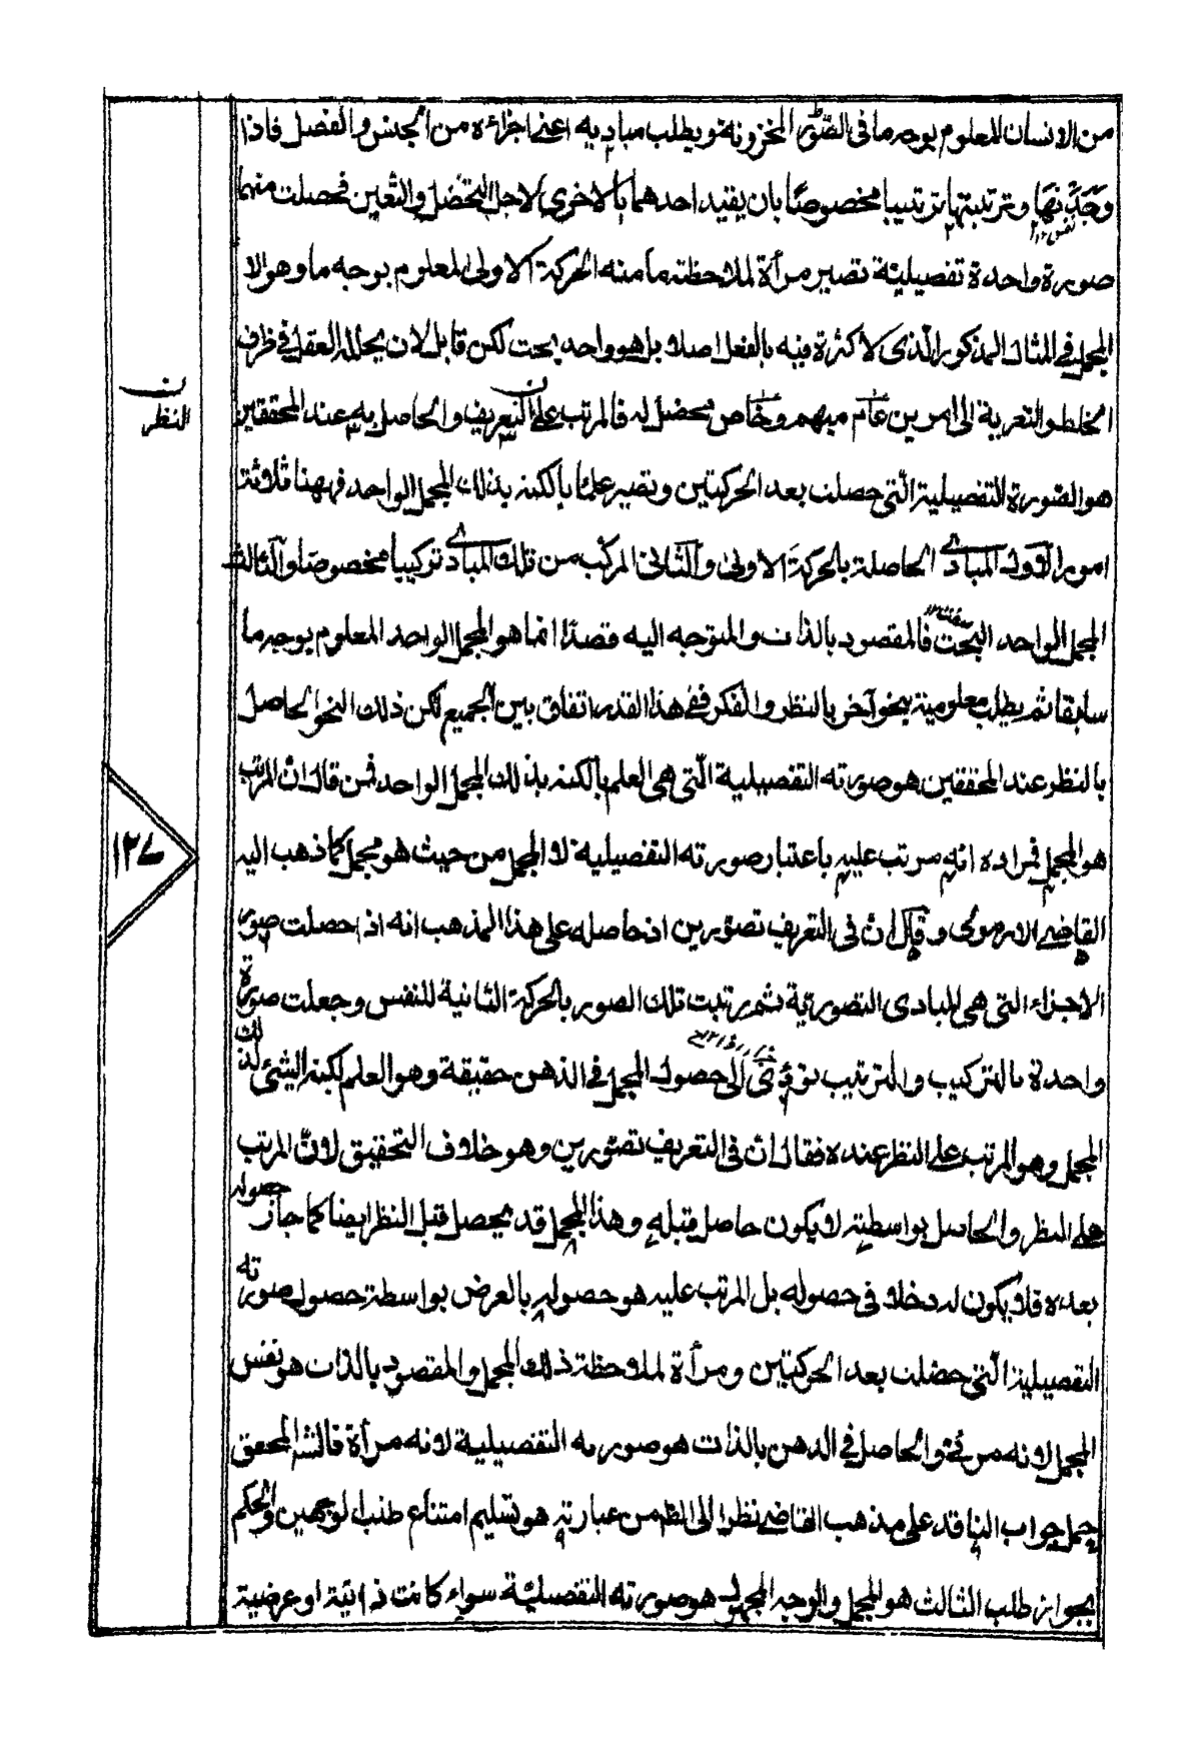 من الانسان للمعلوم بوجه ما فى الصور المخزونة ويطلب مباديه اعنى اجزاءه من الجنس والفصل فاذا
وجدتها وترتبتها ترتيبا مخصوصًا بان يقيد احدهما بالاخرى لاجل التحصل والتعين فحصلت منهما
صورة واحدة تفصيلية تصير مرأة لملاحظة ما منه الحركة الاولى المعلوم بوجه ما وهو الا
المجمل فى المثال المذكور الذى لا كثرة فيه بالفعل اصلا بل هو واحد بحت لكن قابل لان يحلله العقل فى ظرف
الخلط والتعرية الى امرين عام مبهم وخاص محصل له فالمرتب على التعريف والحاصل به عند المحققين
هو الصورة التفصيلية التى حصلت بعد الحركتين وتصير علمًا بالكنه بذلك المجمل الواحد فههنا ثلاثة
امور الاول المبادى الحاصلة بالحركة الاولى والثانى المركب من تلك المبادى تركيبا مخصوصا والثالث
المجمل الواحد البحت فالمقصود بالذات والمتوجه اليه قصدًا انما هو المجمل الواحد المعلوم بوجه ما
سابقا ثم يطلب معلوميته بنحو آخر بالنظر والفكر ففى هذا القدر اتفاق بين الجميع لكن ذلك النحو الحاصل
بالنظر عند المحققين هو صورته التفصيلية التى هى العلم بالكنه بذلك المجمل الواحد فمن قال ان المرتب
هو المجمل فمراده انه مرتب عليه باعتبار صورته التفصيلية لا المجمل من حيث هو مجمل كما ذهب اليه
القاضى الارموى وقال ان فى التعريف تصورين اذ حاصله على هذا المذهب انه اذا حصلت صور
الاجزاء التى هى المبادى التصورية ثم رتبت تلك الصور بالحركة الثانية للنفس وجعلت صورة
واحدة بالتركيب والترتيب تؤدى الى حصول المجمل فى الذهن حقيقة وهو العلم لكنه الشئ لذلك
المجمل وهو المرتب على النظر عنده فقال ان فى التعريف تصورين وهو خلاف التحقيق لان المرتب
على النظر والحاصل بواسطته لا يكون حاصل قبله وهذا المجمل قد يحصل قبل النظر ايضا كما جاز حصوله
بعده فلا يكون له دخل فى حصوله بل المرتب عليه هو حصوله بالعرض بواسطة حصول صورته
التفصيلية التى حصلت بعد الحركتين ومرأة لملاحظة ذلك المجمل والمقصود بالذات هو نفس
المجمل لانه مرئى والحاصل فى الذهن بالذات هو صورته التفصيلية لانه مرأة فالش المحقق
حمل جواب الناقد على مذهب القاضى نظرا الى الظ من عبارته هو تسليم امتناع طلب لوجهين والحكم
بجواز طلب الثالث هو المجمل والوجه المجهول هو صورته التفصيلية سواء كانت ذاتية او عرضية
ن
النظر
١٢٧